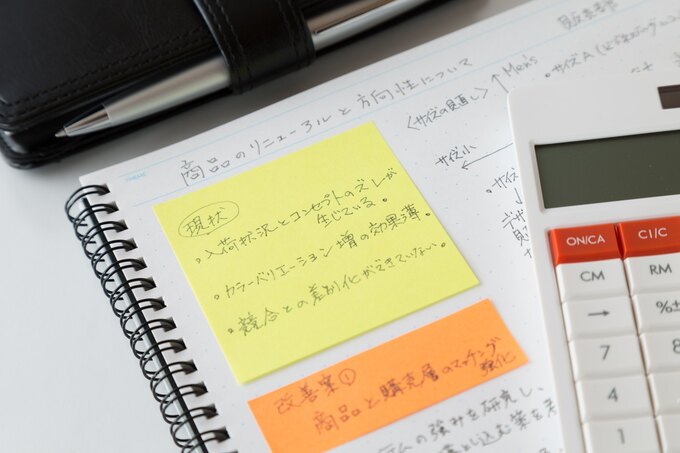 商品のリニューアルと方向性について
現状
入荷状況とコンセプトのズレが
生じている。
カラーバリエーション増の効果薄。
競合との差別化ができていない。
改善案①
商品と購売層のマッチング
強化
の強みを研究し、
〈サイズの見直し〉
↑Men's
サイズ小
・サイズA
・サイズ
ON/CA
C1/C
CM
RM
→
%±
7
8
4
5
1
THEME